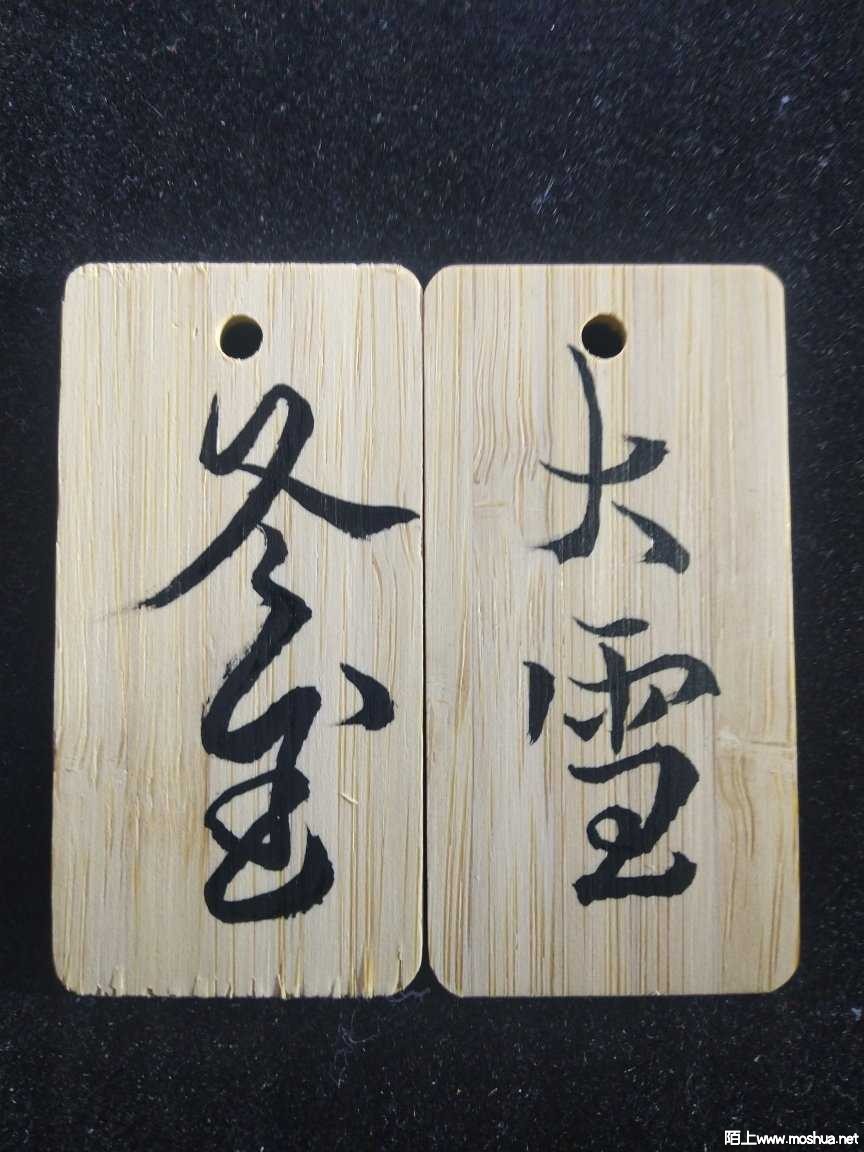 大雪
冬至
陌上www.moshua.net